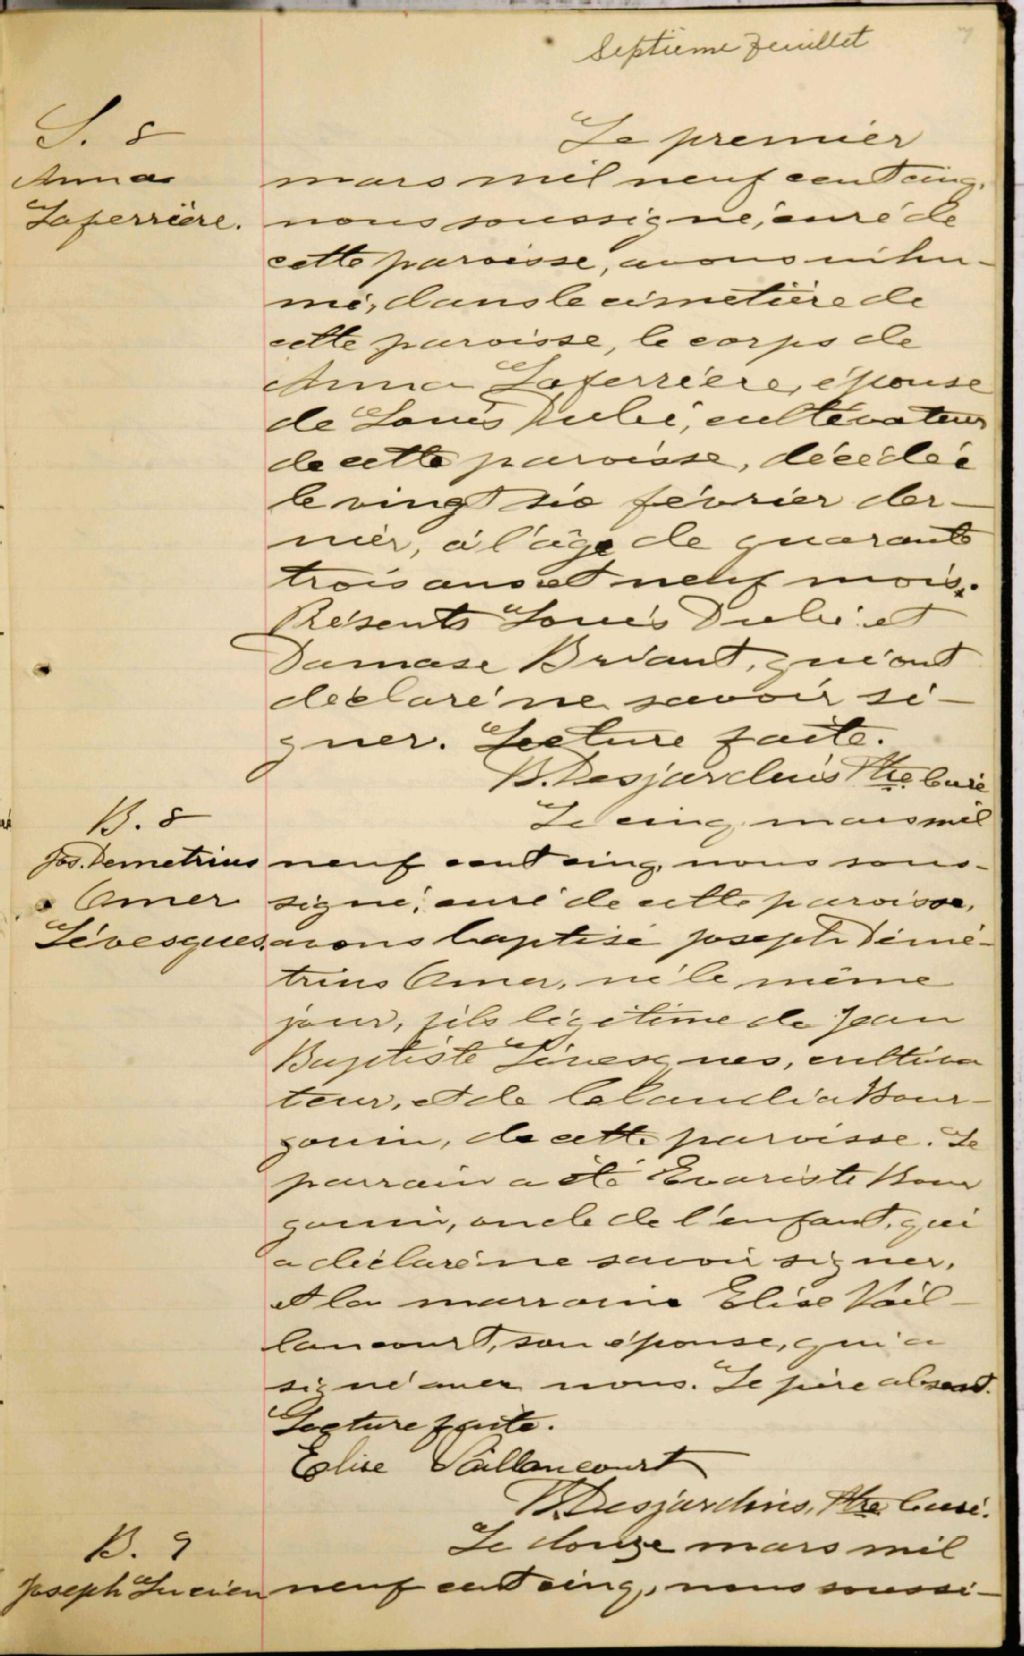 Septième feuillet
S. 8
Anna
Laferrière.
Le premier
mars mil neuf cent cinq,
nous soussigné, curé de
cette paroisse, avons inhu-
mé, dans le cimetière de
cette paroisse, le corps de
Anna Laferrière, épouse
de Louis Dubé, cultivateur
de cette paroisse, décédée
le vingt six février der-
nier, à l'âge de quarante
trois ans et neuf mois.
Présents Louis Dubé et
Damase Briant, qui ont
déclaré ne savoir si-
gner. Lecture faite.
B. Desjardins Ptre Curé
B. 8
Jos. Demetrius
Omer
Lévesques.
Le cinq mars mil
neuf cent cinq, nous sous-
signé, curé de cette paroisse,
avons baptisé Joseph Démé-
trius Omer, né le même
jour, fils légitime de Jean
Baptiste Lévesques, cultiva
teur, et de Claudia Bour-
gouin, de cette paroisse. Le
parrain a été Evariste Bour
gouin, oncle de l'enfant, qui
a déclaré ne savoir signer,
et la marraine Elise Vail-
lancourt, son épouse, qui a
signé avec nous. Le père absent.
Lecture faite.
Elise Vaillancourt
B. Desjardins, Ptre Curé.
B. 9
Joseph Lucien
Le douze mars mil
neuf cent cinq, nous soussi-